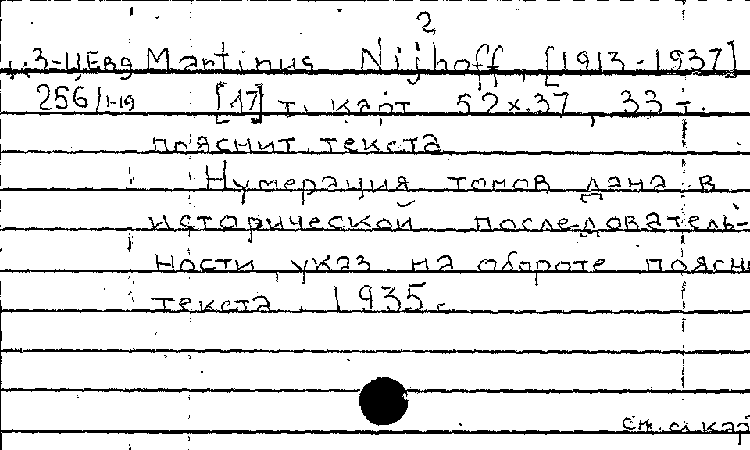 2
из-ЦЕвд Martinus Nijhoff, [1913-1937]
256/1-19 [17] т. карт 52x37, 33 т.
пояснит текста
Нумерация томов дана в
исторической последователь-
ности, указ. на обороте поясн
текста. 1935г.
см. сл кар